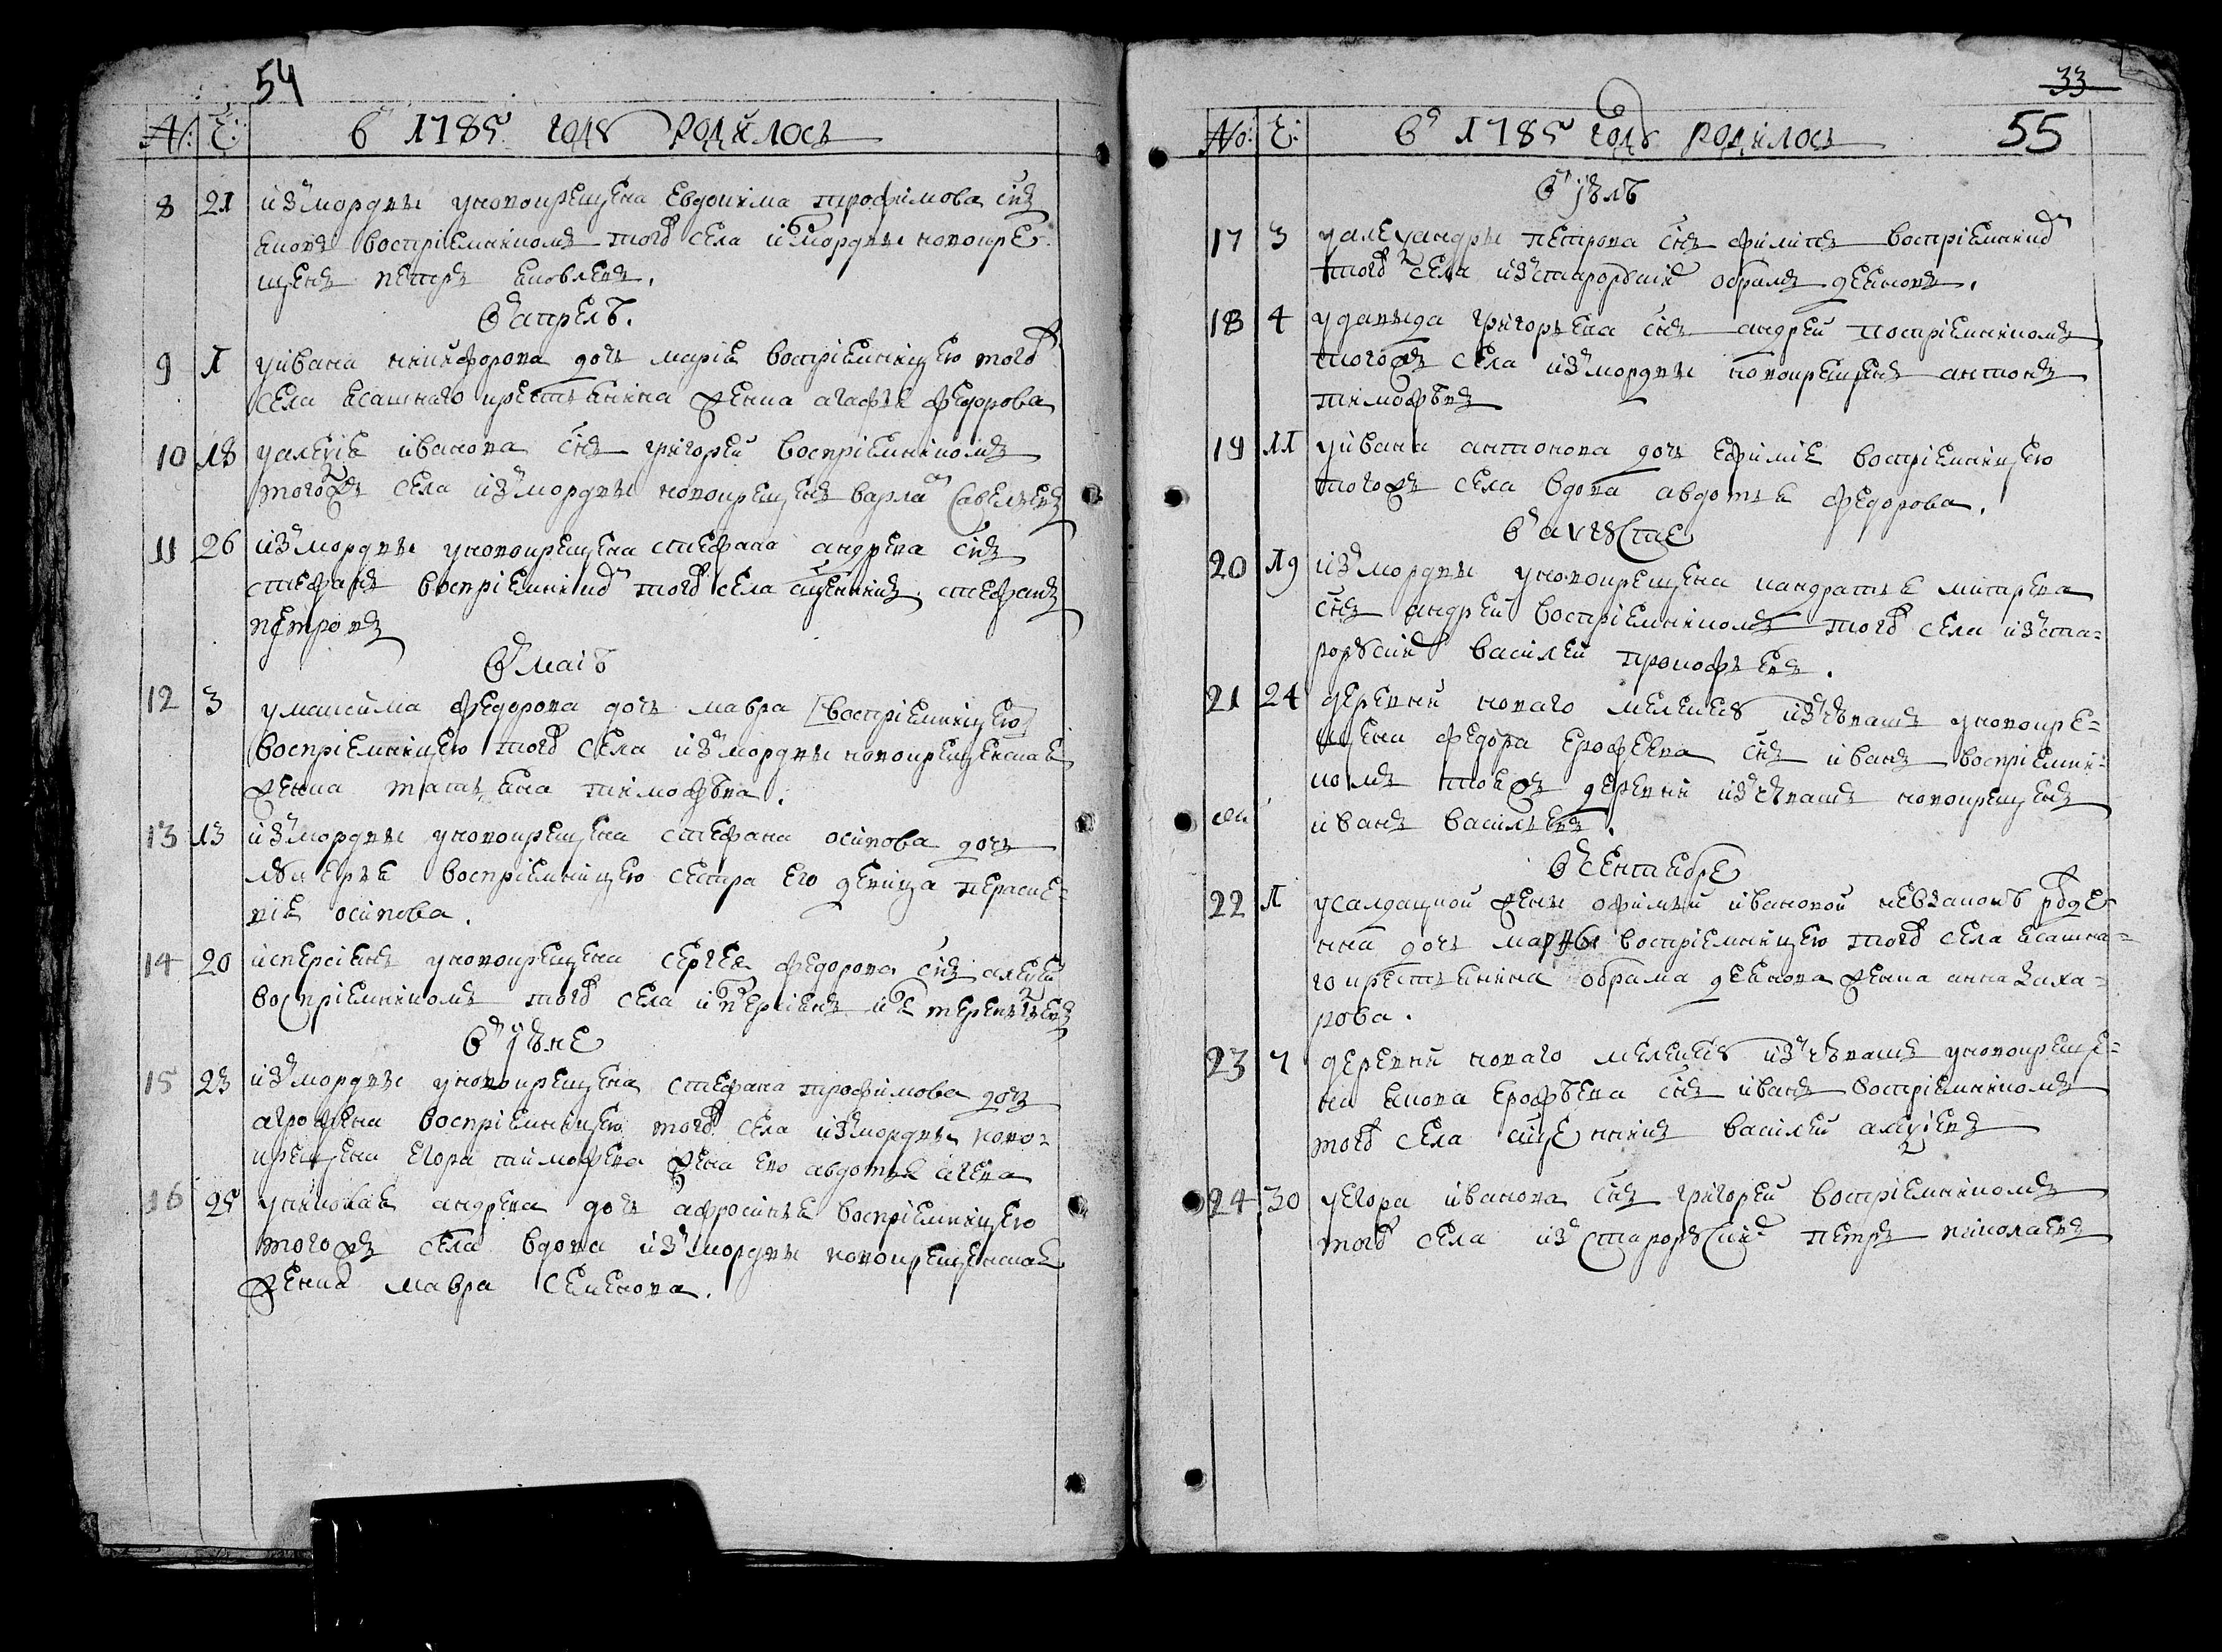 54
№: Е:
в 1785 году родилось
8 21 из мордвы у новокрещена евдокима трофимова снъ
яковъ восприемникомъ того села из мордвы новокре
щенъ петръ яковлевъ.
в апреле.
9 1 у ивана никифорова дочь мария восприемницею того
села ясашнаго крестьянина жена агафья федорова
10 18 у алексея иванова снъ григорей восприемникомъ
того жъ села из мордвы новокрещенъ варлам савельевъ
11 26 из мордвы у новокрещена стефана андрева снъ
стефанъ восприемнико того села сщенникъ стефанъ
петровъ
в маие
12 3 у максима федорова дочь мавра [восприемницею]
восприемницею того села из мордвы новокрещенская
женка татьяна тимофева.
13 13 из мордвы у новокрещена стефана осипова дочь
лукерья восприемницею сестра его девица параске-
вия осипова.
14 20 ис персиянъ у новокрещена сергея федорова снъ алексей
восприемникомъ того села ис персиянъ терентьевъ
в июне
15 23 из мордвы у новокрещена стефана трофимова дочь
агрофена восприемницею того села из мордвы ново-
крещена егора тимофева жена ево авдотья
16 25 у николая андрева дочь афросинья восприемницею
того жъ села вдова из мордвы новокрещенская
женка мавра семенова.
33
55
№: Е:
в 1785 году родилось
в июле
17 3 у александры петрова снъ филипъ восприемнико
того села из старорускихъ обрамъ демновъ.
18 4 у давыда григорьева снъ андрей восприемникомъ
того жъ села из мордвы новокрещенъ антонъ
тимофевъ
19 11 у ивана антонова дочь ефимия восприемницею
того жъ села вдова авдотья федорова.
в августе
20 19 из мордвы у новокрещена кандратья митрева
снъ андрей восприемникомъ того села из ста-
рорускихъ василей прокофьевъ.
21 24 деревни новаго мелекеса из чювашъ у новокре-
щена федора ерофеева снъ иванъ восприемни-
комъ тоя жъ деревни из чювашъ новокрещенъ
иванъ васильевъ.
в сентебре
22 1 у салдацкой жены офимьи ивановой незаконо рожде-
нна дочь марфа восприемницею того села ясашна-
го крестьянина обрама демнова жена анна заха-
рова.
23 7 деревни новаго мелекеса из чювашъ у новокреще-
на якова ерофеева снъ иванъ восприемникомъ
того села сщенникъ василей алексиевъ
24 30 у егора иванова снъ григорей восприемникомъ
того села из старорускихъ петръ николаевъ